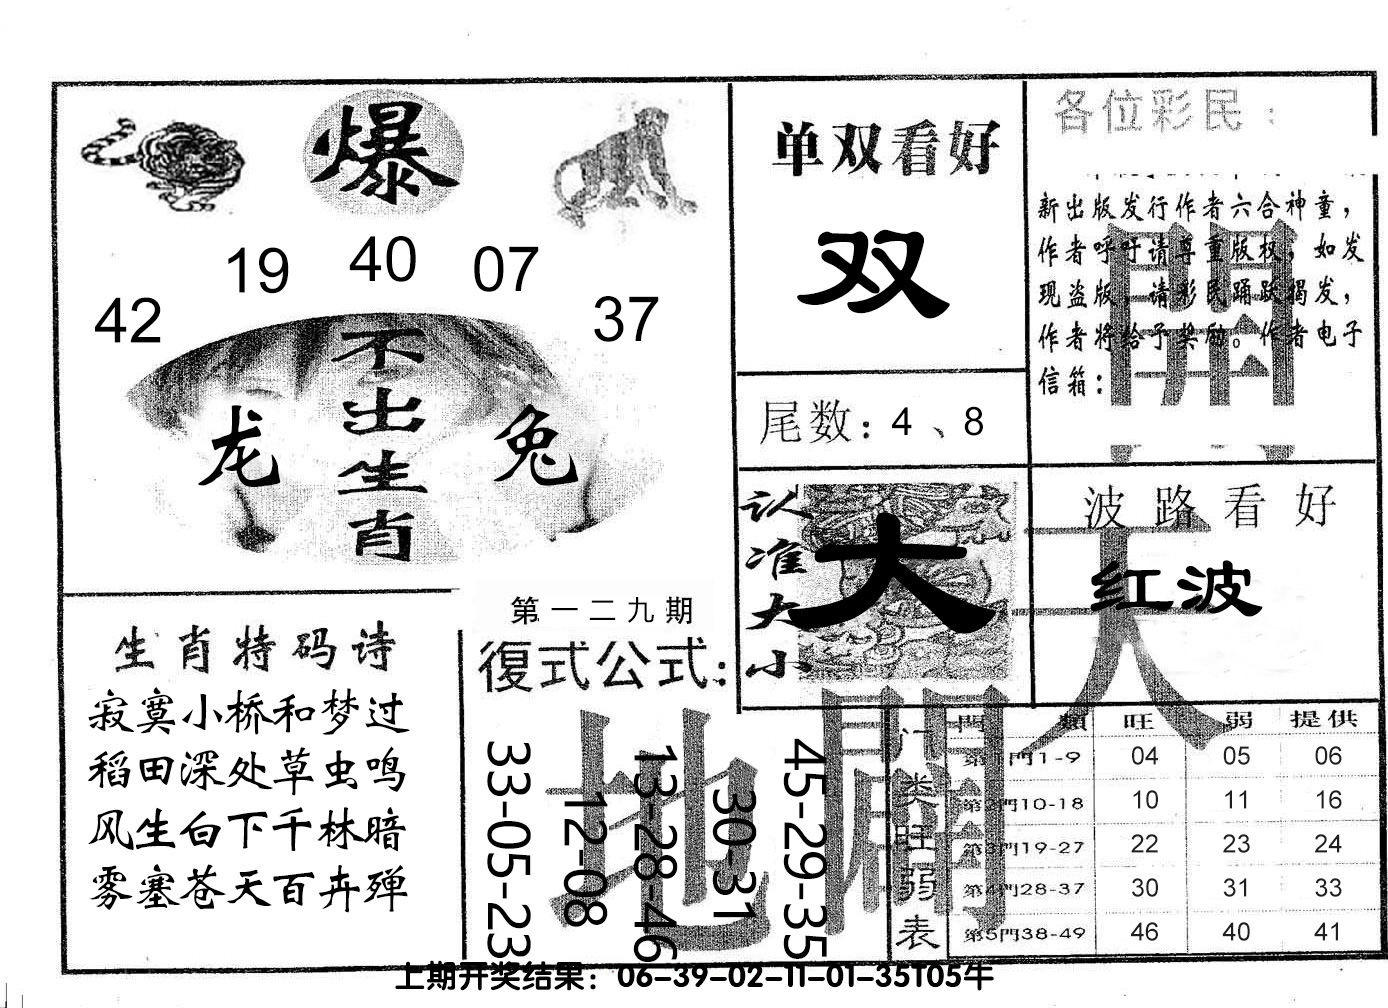 爆
42
19
40
07
37
不出生肖
龙
兔
单双看好
双
尾数：4、8
各位彩民：
新出版发行作者六合神童，
作者呼吁请尊重版权，如发
现盗版，请彩民踊跃揭发，
作者将给予奖励。作者电子
信箱：
開
认准大小
大
波路看好
红波
天
生肖特码诗
寂寞小桥和梦过
稻田深处草虫鸣
风生白下千林暗
雾塞苍天百卉殚
第一二九期
復式公式：
33-05-23
12-08
13-28-46
30-31
45-29-35
地
闢
门类旺弱表
門類 旺 弱 提供
第1門1-9 04 05 06
第2門10-18 10 11 16
第3門19-27 22 23 24
第4門28-37 30 31 33
第5門38-49 46 40 41
上期开奖结果：06-39-02-11-01-35T05牛